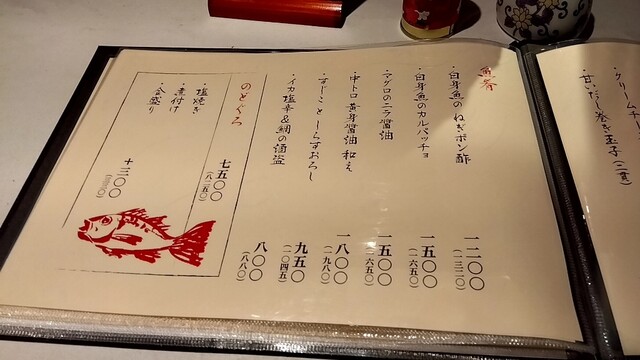 クリームチー
甘いだし巻き玉子(二貫)
魚肴
・白身魚のねぎポン酢 一二〇〇(一三二〇)
・白身魚のカルパッチョ 一五〇〇(一六五〇)
・マグロのニラ醤油 一五〇〇(一六五〇)
・中トロ 黄身醤油和え 一八〇〇(一九八〇)
・すじことしらすおろし 九五〇(一〇四五)
・イカ塩辛&鯛の酒盗 八〇〇(八八〇)
のどぐろ 七五〇〇(八二五〇)
・塩焼き
・煮付け
・釜盛り 十三〇〇